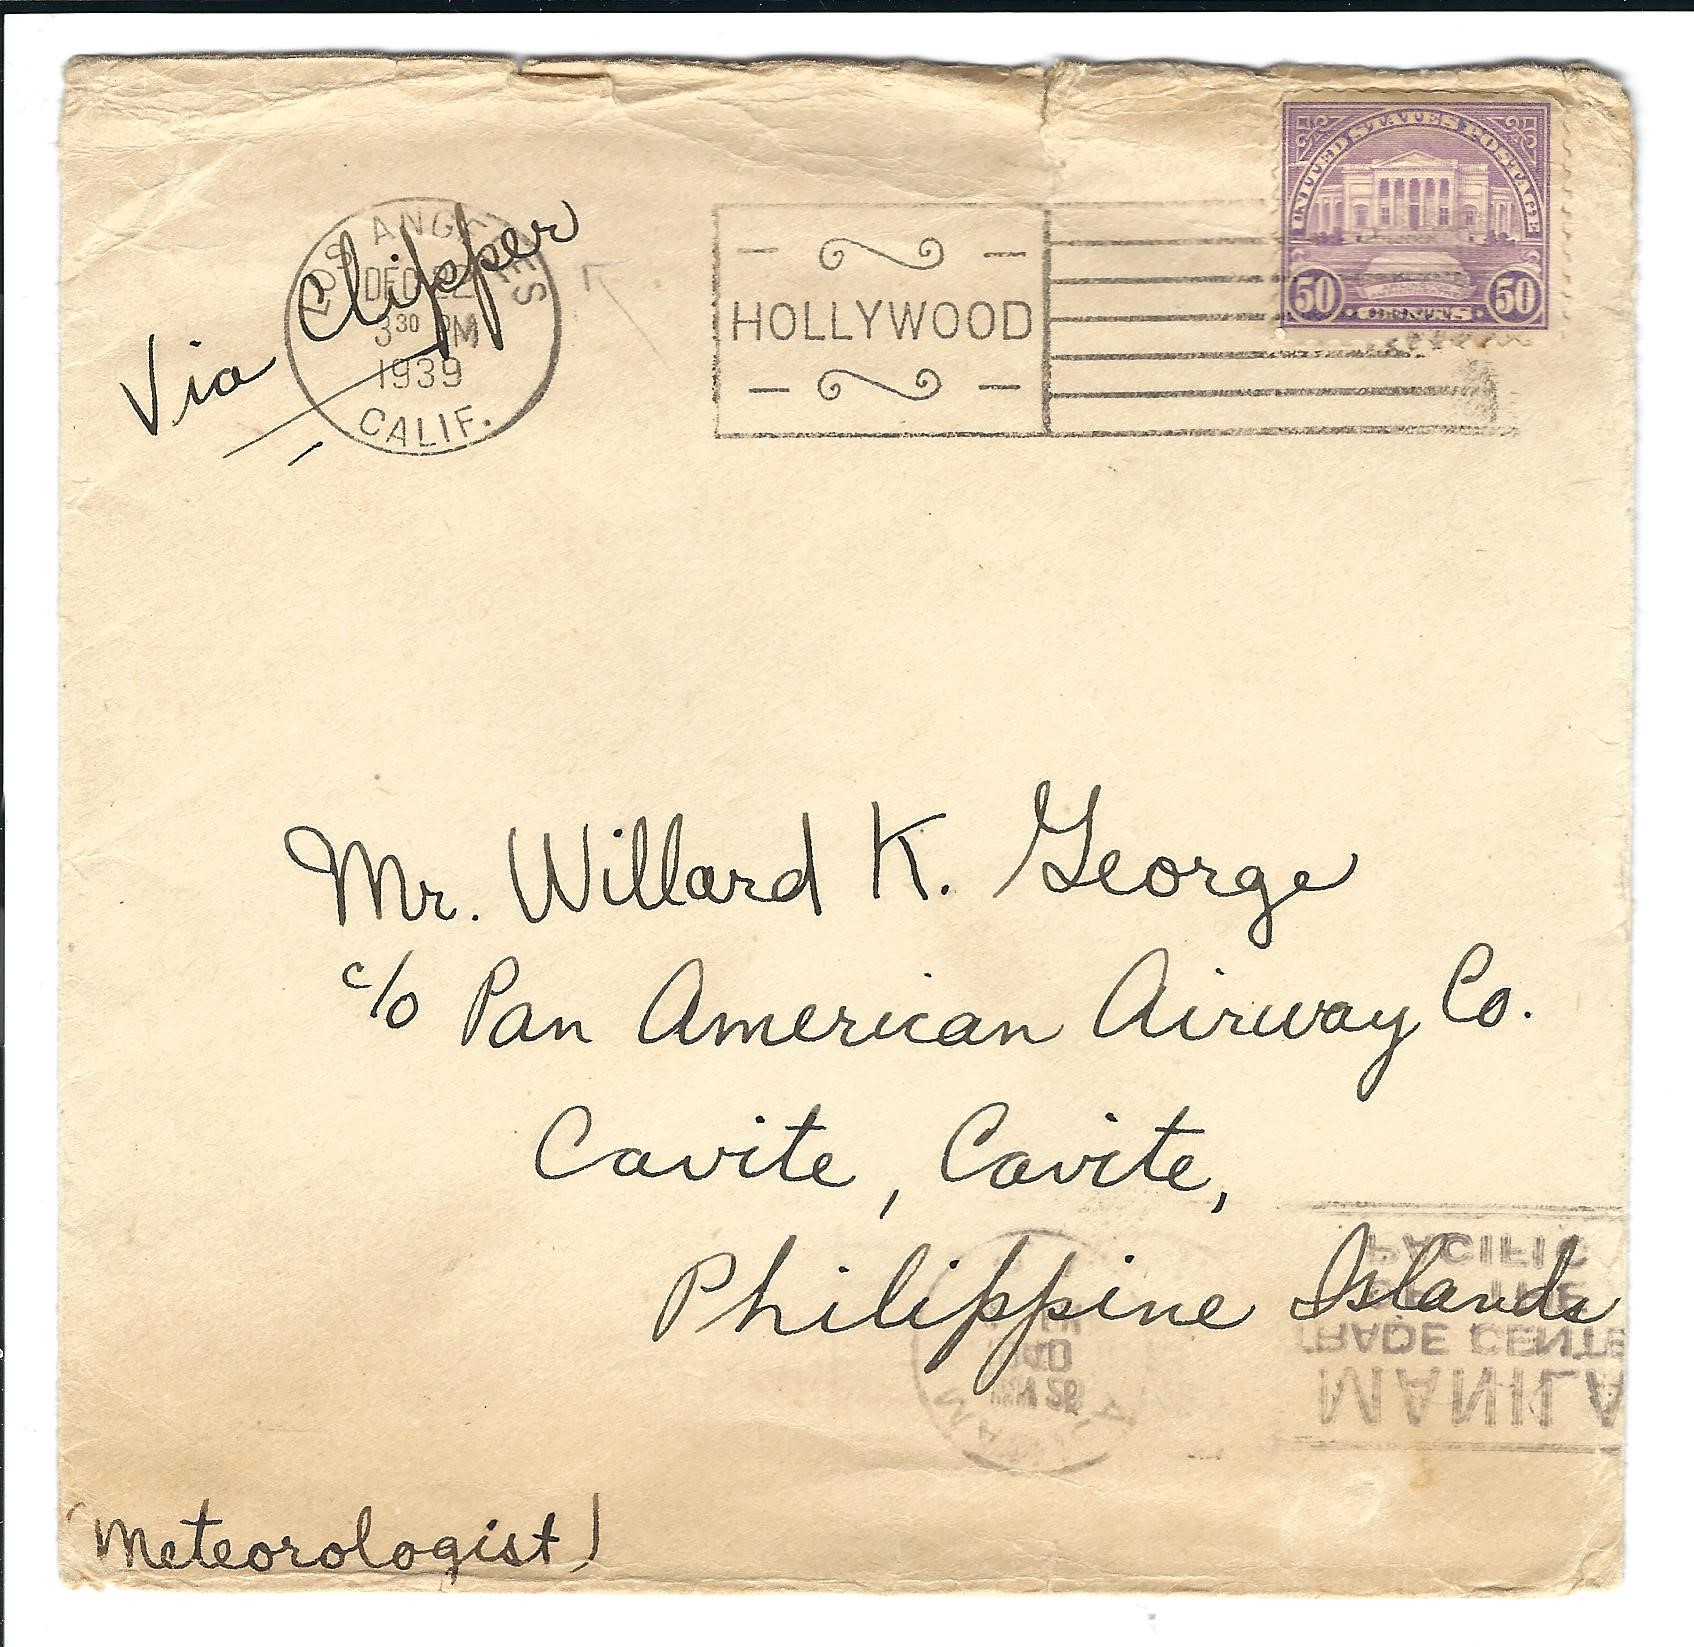 LOS ANGELES
DEC 22
3 30 PM
1939
CALIF.
Via Clipper
HOLLYWOOD
UNITED STATES POSTAGE
50 50
Mr. Willard K. George
c/o Pan American Airway Co.
Cavite, Cavite,
Philippine Islands
MANILA
TRADE CENTE
PACIFIC
(Meteorologist)